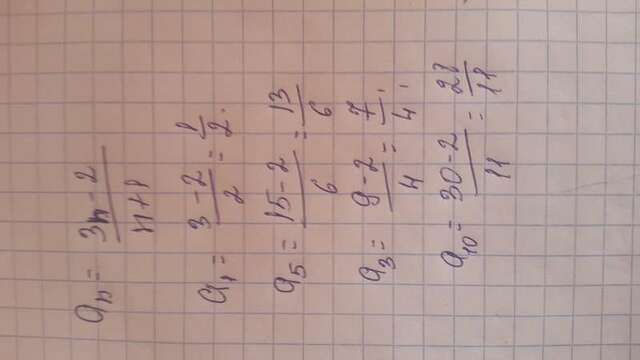 aₙ = (3n-2)/(n+1)
a₁ = (3-2)/2 = 1/2.
a₅ = (15-2)/6 = 13/6
a₃ = (9-2)/4 = 7/4.
a₁₀ = (30-2)/11 = 28/11